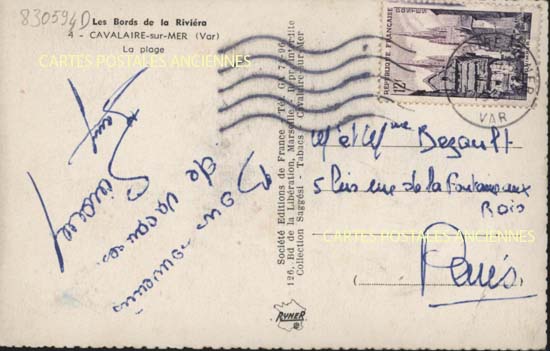 830594D
Les Bords de la Riviéra
4 - CAVALAIRE-sur-MER (Var)
La plage
CARTES POSTALES ANCIENNES
un souvenir
de vacances
Société Editions de France - Tél. GA 7
126, Bd de la Libération, Marseille - Repr. interdite
Collection Saggési - Tabacs - Cavalaire-sur-Mer
RYNER
REPUBLIQUE FRANÇAISE
12F
VAR
M et Mme Bezault
5 bis rue de la Fontaine aux
Bois
CARTES POSTALES ANCIENNES
Paris